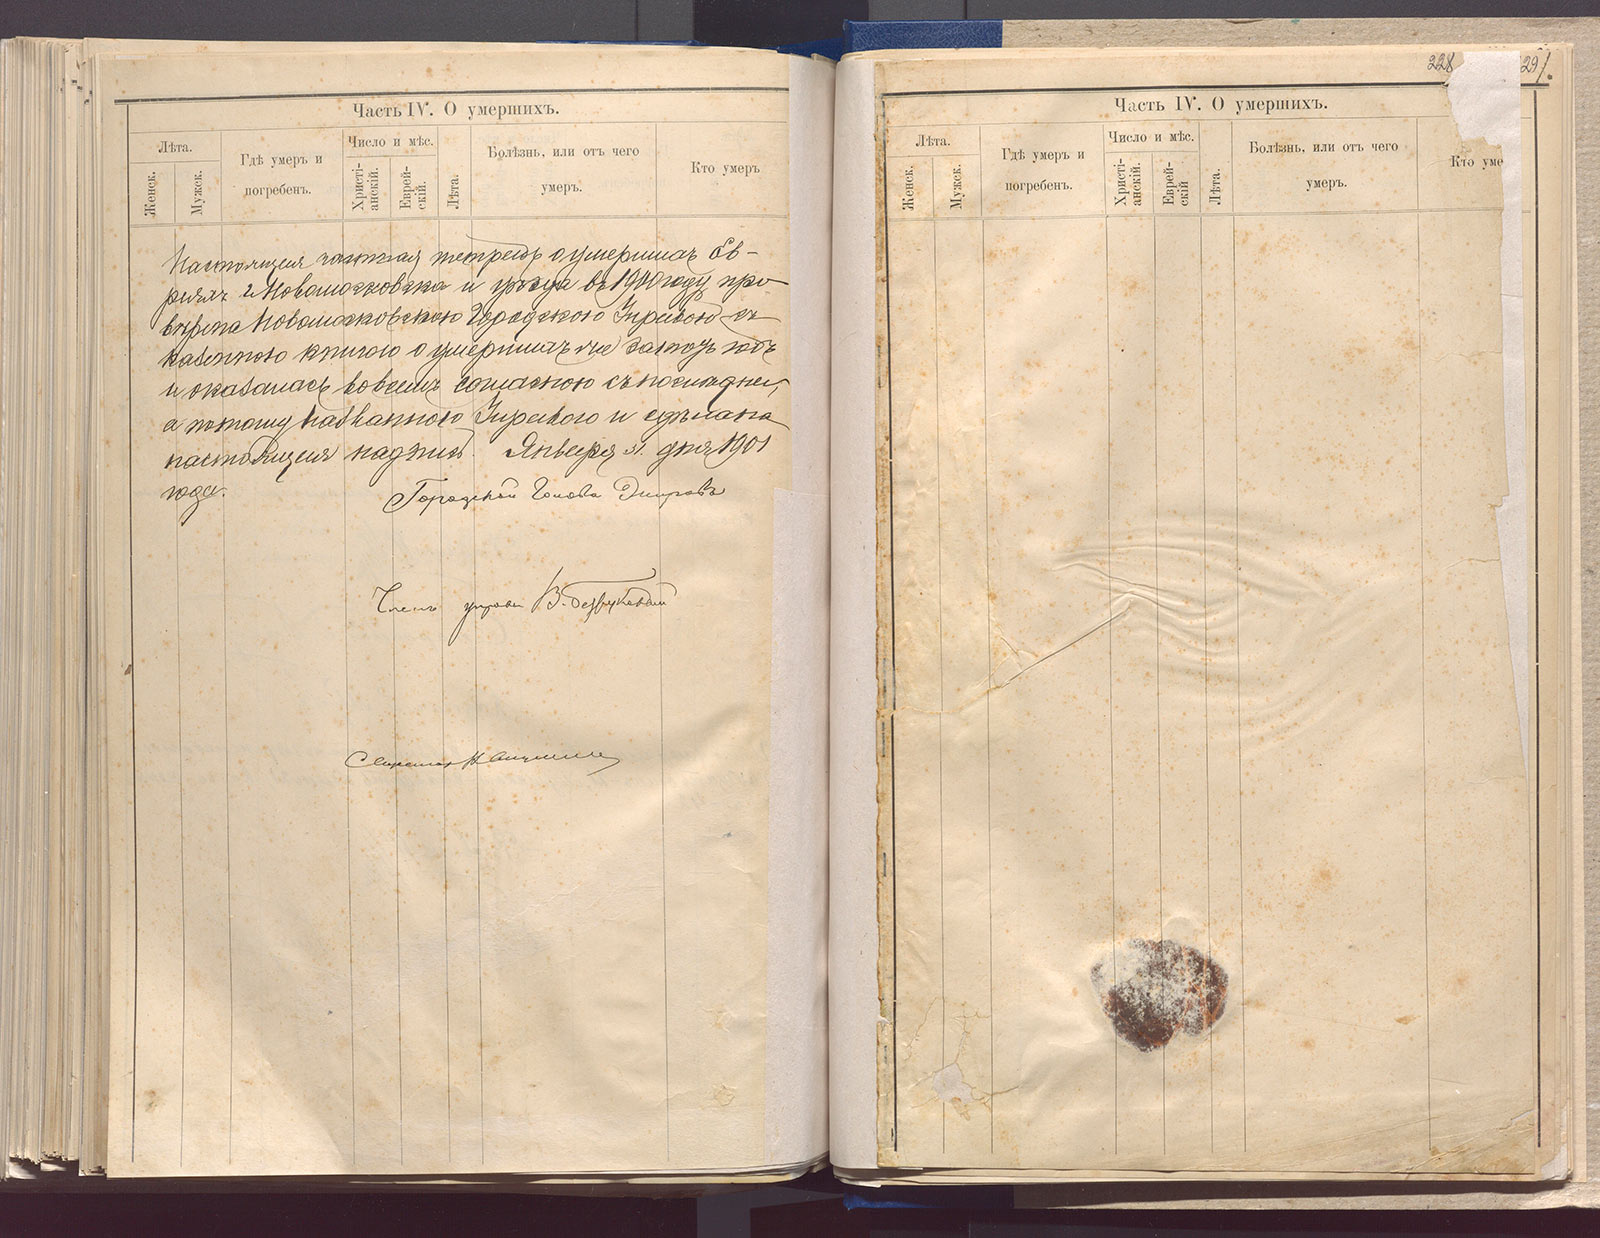 Часть IV. О умершихъ.
Лѣта.
Женск.
Мужск.
Гдѣ умеръ и
погребенъ.
Число и мѣс.
Христі-
анскій.
Еврей-
скій.
Лѣта.
Болѣзнь, или отъ чего
умеръ.
Кто умеръ
Настоящая частная тетрадь о умершихъ Ев-
реяхъ г. Новомосковска и уѣзда въ 1900 году про
вѣрена Новомосковскою Городскою Управою съ
казенною книгою о умершихъ же за тотъ годъ
и оказалась во всемъ согласною съ послѣдней,
а потому названною Управою и сдѣлана
настоящая надпись. Января 31 дня 1901
года.
Городской Голова
Членъ управы В.
Секретарь
228
291.
Часть IV. О умершихъ.
Лѣта.
Женск.
Мужск.
Гдѣ умеръ и
погребенъ.
Число и мѣс.
Христі-
анскій.
Еврей-
скій
Лѣта.
Болѣзнь, или отъ чего
умеръ.
Кто уме